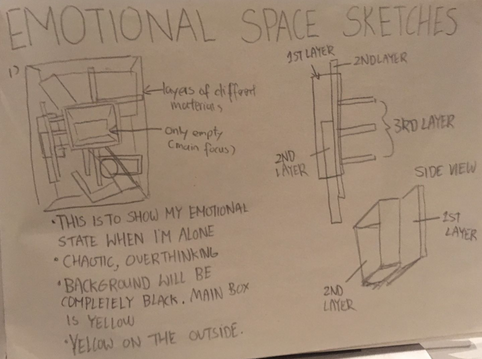 EMOTIONAL SPACE SKETCHES
1)
layers of different
materials
only empty
(main focus)
• THIS IS TO SHOW MY EMOTIONAL
STATE WHEN I'M ALONE
• CHAOTIC, OVERTHINKING
• BACKGROUND WILL BE
COMPLETELY BLACK. MAIN BOX
IS YELLOW
• YELLOW ON THE OUTSIDE.
1ST LAYER
2ND LAYER
3RD LAYER
2ND
LAYER
SIDE VIEW
1ST
LAYER
2ND
LAYER